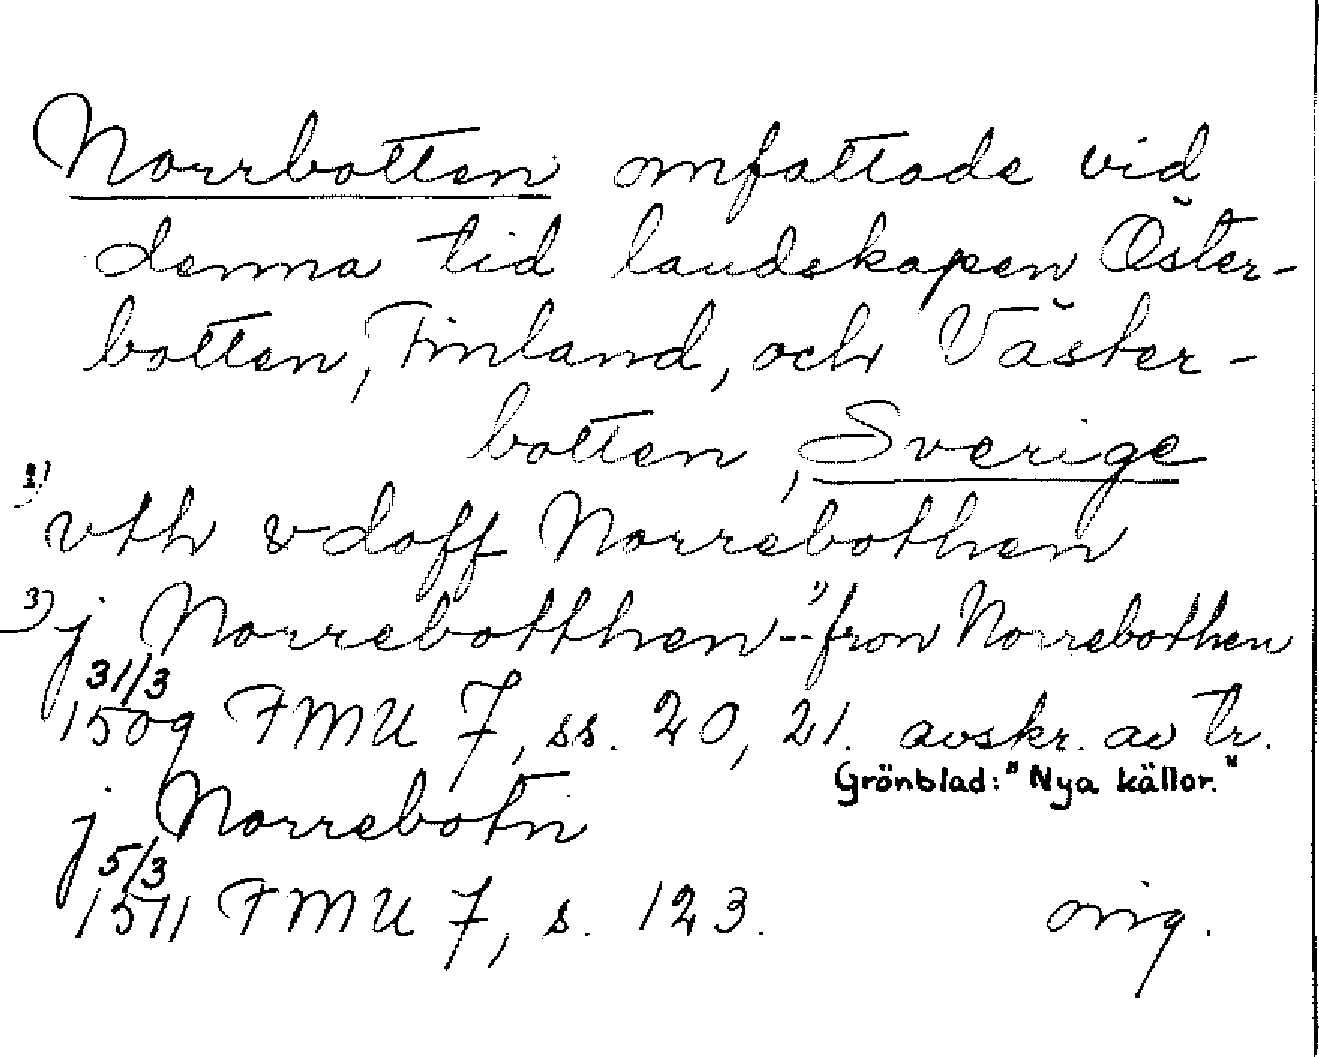 Norrbotten omfattade vid
denna tid landskapen Öster-
botten, Finland, och Väster-
botten, Sverige
1) vth vdoff Norrebothen
3) j Norrebotthen -- 2) fron Norrebothen
31/3
1509 FMU 7, ss. 20, 21. avskr. av tr.
Grönblad: "Nya källor."
j Norrebotn
5/3
1511 FMU 7, s. 123. orig.